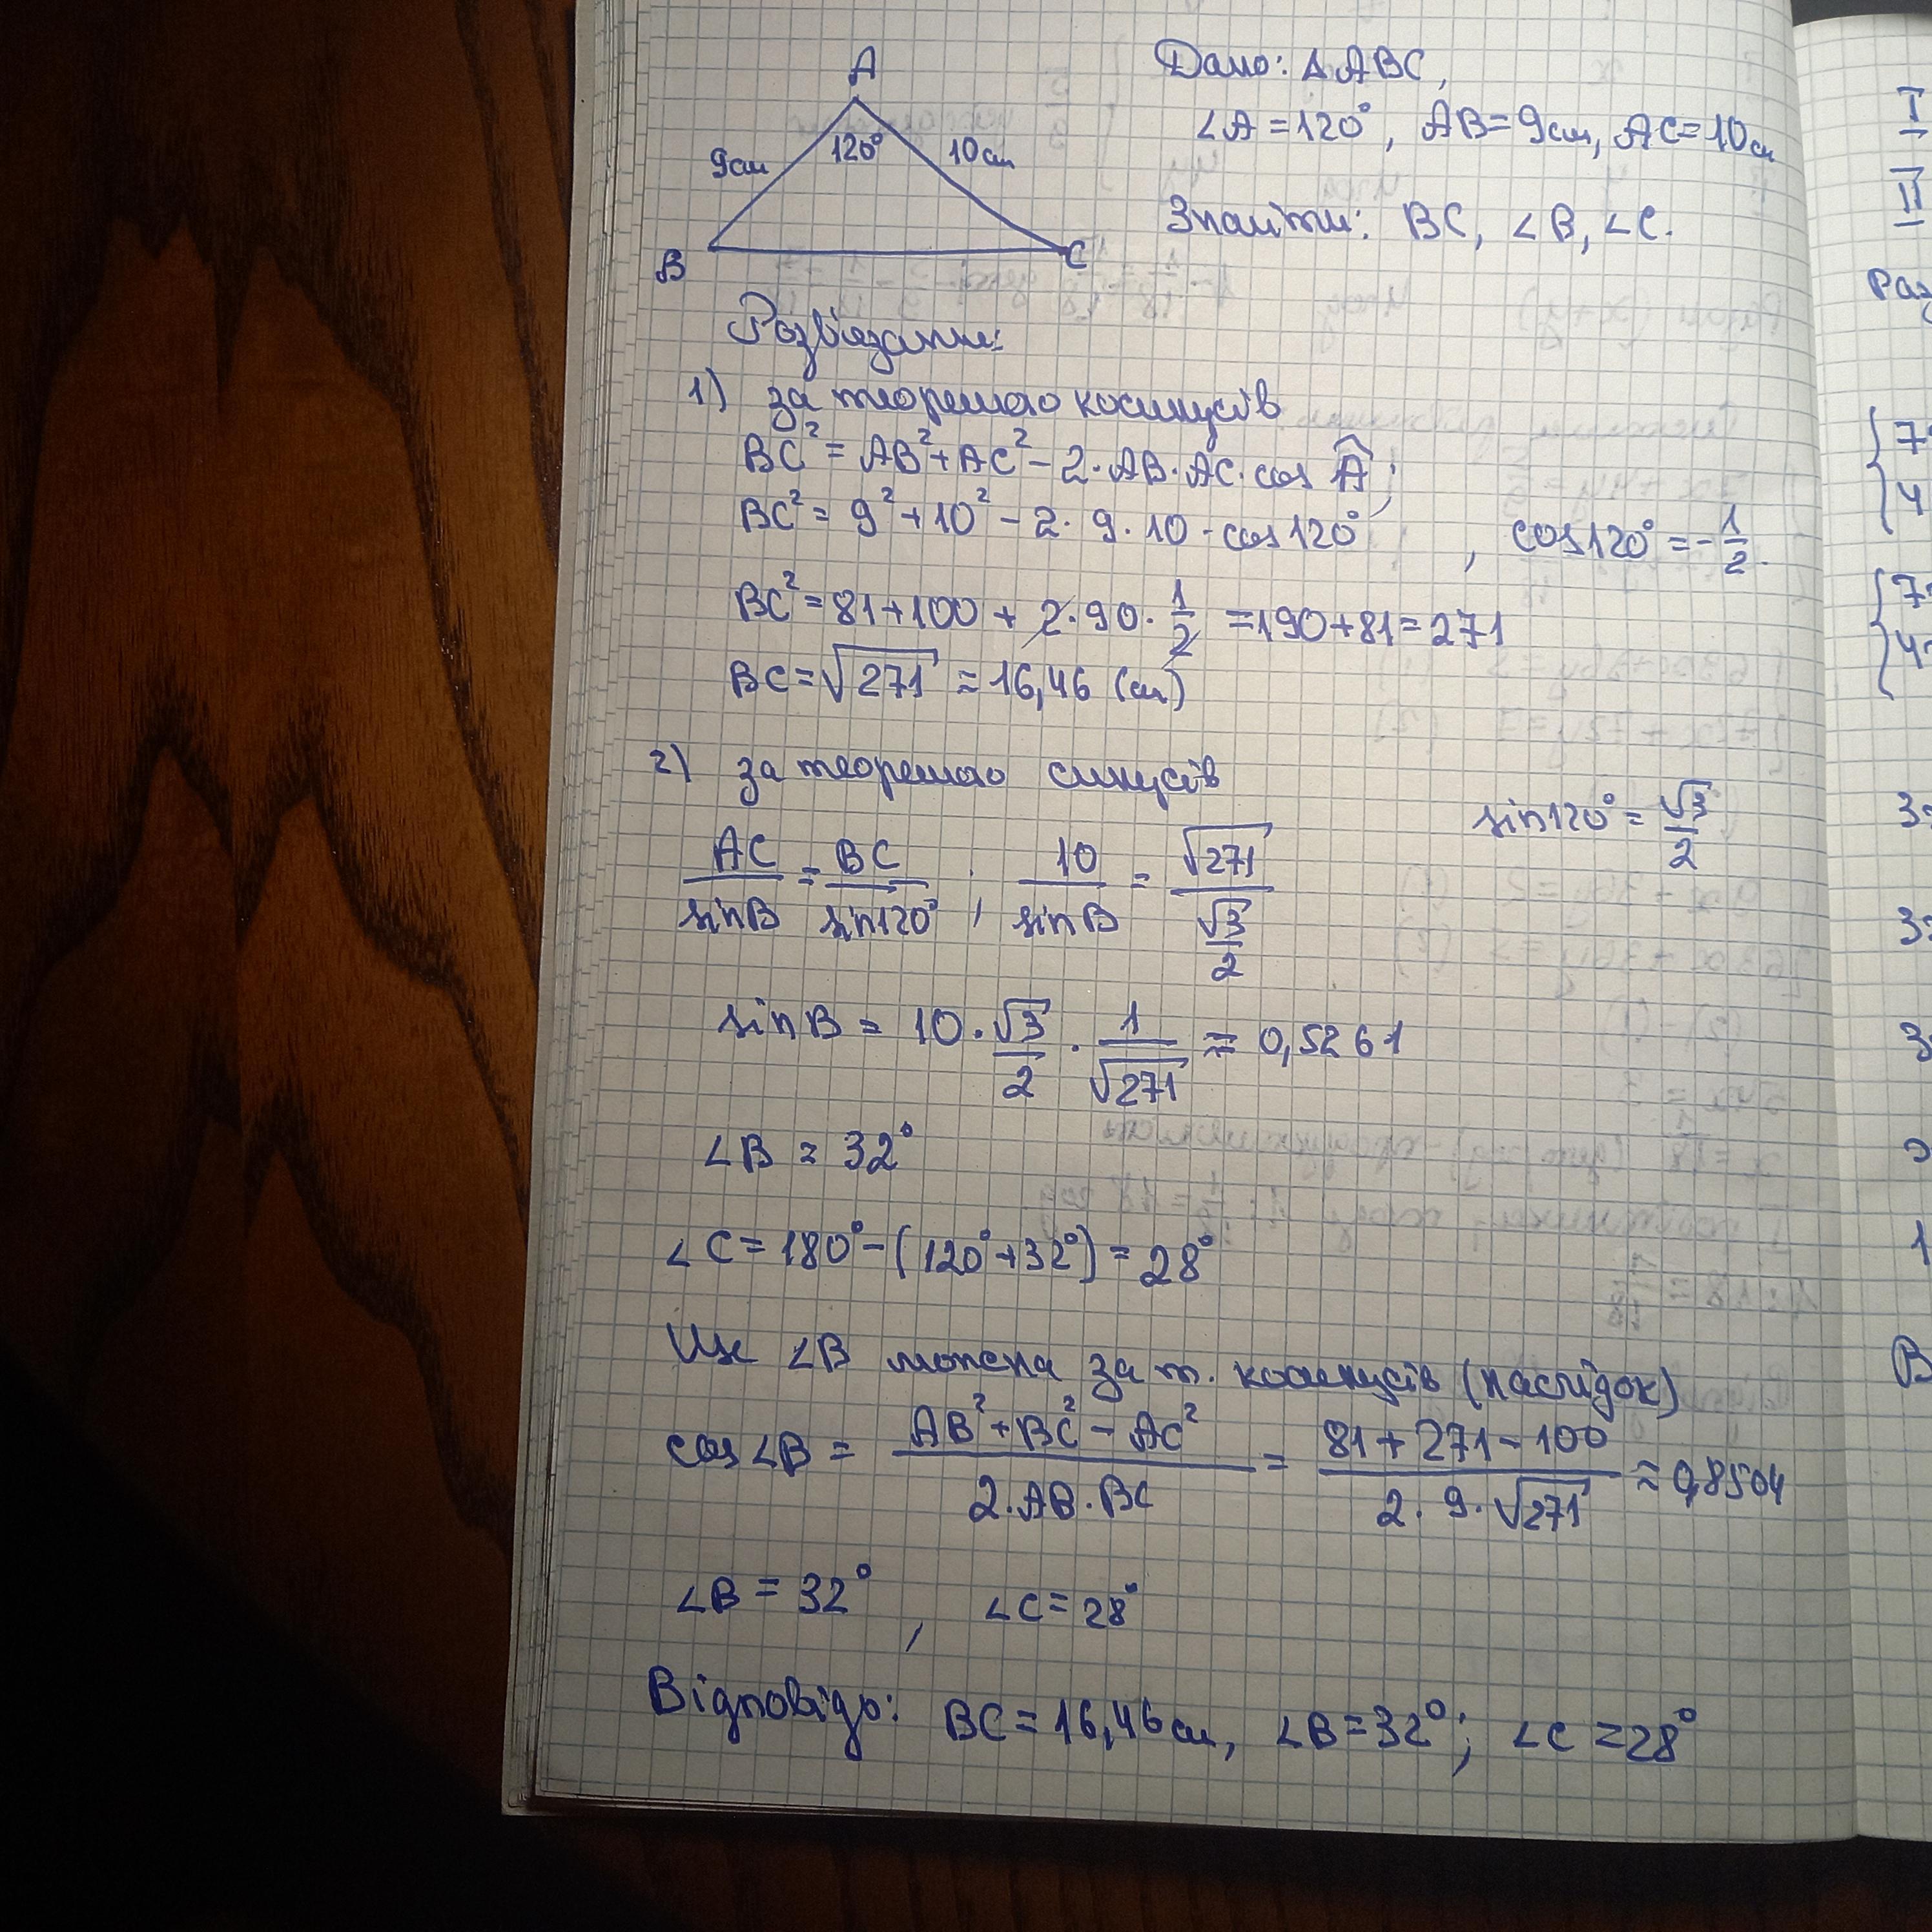 A
9см
120°
10см
B
C
Дано: Δ ABC,
∠A = 120°, AB = 9см, AC = 10см
Знайти: BC, ∠B, ∠C.
Розв'язання:
1) за теоремою косинусів
BC² = AB² + AC² - 2·AB·AC·cos Â;
BC² = 9² + 10² - 2·9·10·cos120°, cos120° = -1/2.
BC² = 81+100 + 2·90·1/2 = 190+81 = 271
BC = √271 ≈ 16,46 (см)
2) за теоремою синусів
sin120° = √3/2
AC/sinB = BC/sin120°; 10/sinB = √271/(√3/2)
sinB = 10·√3/2·1/√271 ≈ 0,5261
∠B ≈ 32°
∠C = 180° - (120°+32°) = 28°
Ще ∠B можна за т. косинусів (наслідок)
cos∠B = (AB² + BC² - AC²)/(2·AB·BC) = (81+271-100)/(2·9·√271) ≈ 0,8504
∠B = 32°, ∠C = 28°
Відповідь: BC = 16,46 см, ∠B = 32°; ∠C = 28°
I
II